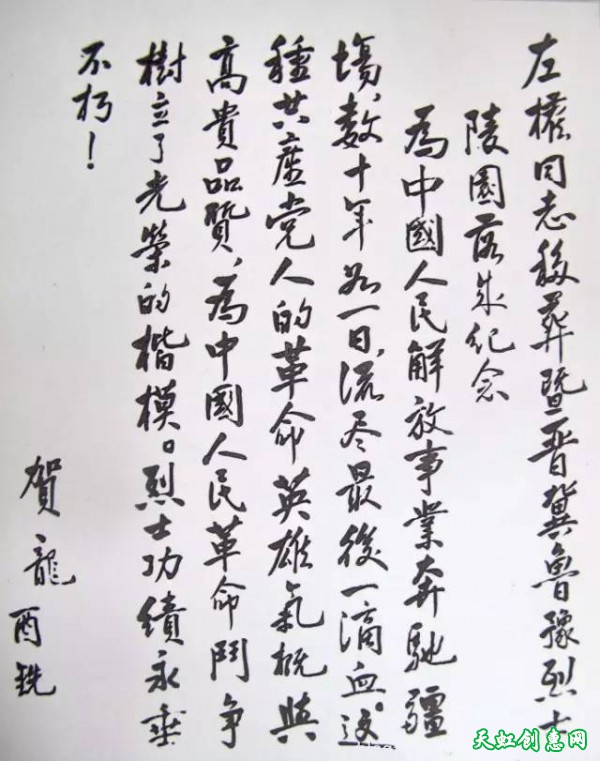 左權同志移葬暨晋冀魯豫烈士
陵園落成纪念
為中國人民解放事業奔馳疆
場,数十年如一日,流尽最後一滴血。这
種共產党人的革命英雄氣概與
高貴品質,為中國人民革命鬥争
樹立了光榮的楷模。烈士功績永垂
不朽!
賀龍 酉銑
天虹创惠网